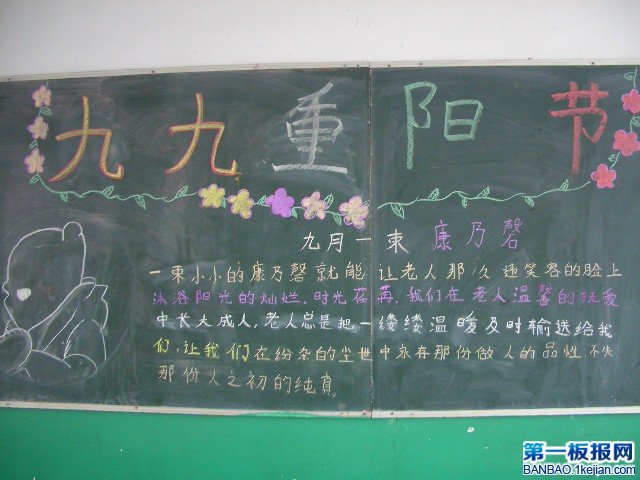 九九重阳节
九月一束 康乃馨
一束小小的康乃馨就能 让老人那久违笑容的脸上
沐浴阳光的灿烂。时光荏苒，我们在老人温馨的抚爱
中长大成人，老人总是把一缕缕温暖及时输送给我
们，让我们在纷杂的尘世中永存那份做人的品性 不失
那份人之初的纯真。
第一板报网
BANBAO.1kejian.com